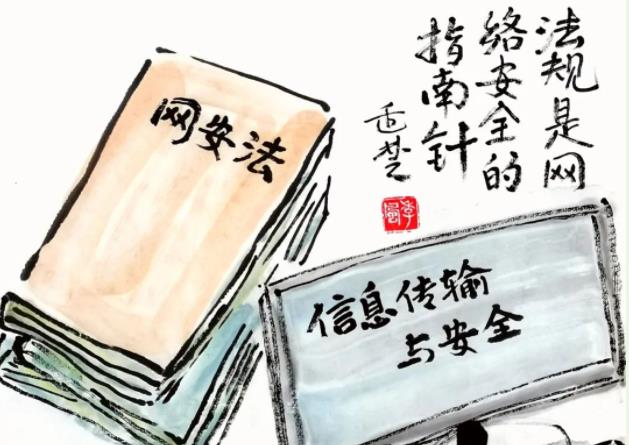 法规是网
络安全的
指南针
网安法
信息传输
与安全